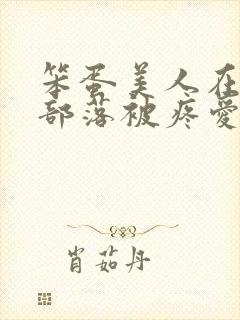 笨蛋美人在
部落被疼爱
肖茹丹